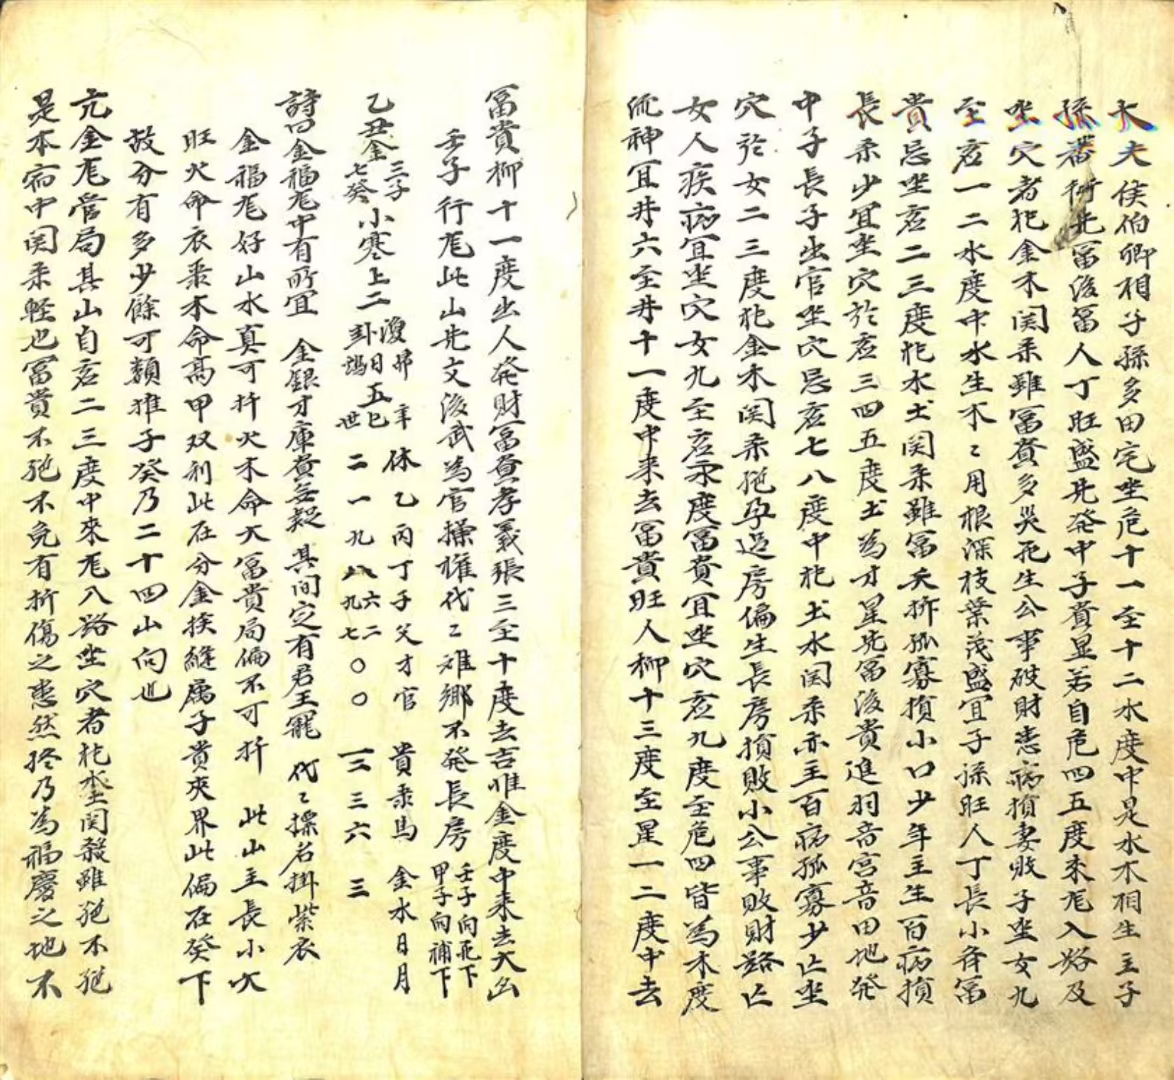 大夫侯伯卿相子孫多田宅坐危十一至十二水度中是水木相生主子
孫蕃衍先富後富人丁旺盛先發中子貴显若自危四五度来尨入路及
坐穴者犯金木関柔雖富貴多災死生公事破財患病損妻敗子坐女九
至虚一二水度中水生木〻用根深枝葉茂盛宜子孫旺人丁長小斉富
貴忌坐虚二三度犯水土関柔雖富夭折孤寡損小口少年主生百病損
長柔少宜坐穴於虚三四五度土為才星先富後貴進羽音宫音田地發
中子長子出官坐穴忌虚七八度中犯土水関柔亦主百病孤寡少亡坐
穴於女二三度犯金木関柔绝孕过房偏生長房損敗小公事敗財路亡
女人疾病宜坐穴女九至虚水度富貴宜坐穴虚九度至危四皆為木度
流神宜井六至井十一度中来去富貴旺人柳十三度至星一二度中去
富貴柳十一度出人發財富貴孝義張三至十度去吉惟金度中来去大凶
壬子行尨此山先文後武為官操權代〻雄鄉不發長房壬子向死下
甲子向補下
乙丑金三子七癸小寒上二卦日五巳世休乙丙丁子父才官貴柔馬金水日月
二一九八九七六二〇〇一二三六三
詩曰金福尨中有所宜金銀才庫貴無疑其间定有君王寵代〻摽名掛紫衣
金福尨好山水真可扦火木命大富貴局偏不可扦此山主長小大
旺火命衣禀木命高甲双利此在分金挨縫属子貴夾界此偏在癸下
故分有多少餘可類推子癸乃二十四山向也
亢金尨管局其山自虚二三度中來尨八路坐穴者犯水土関殺雖绝不绝
是本宿中関柔軽也富貴不绝不免有折傷之患然終乃為福慶之地不